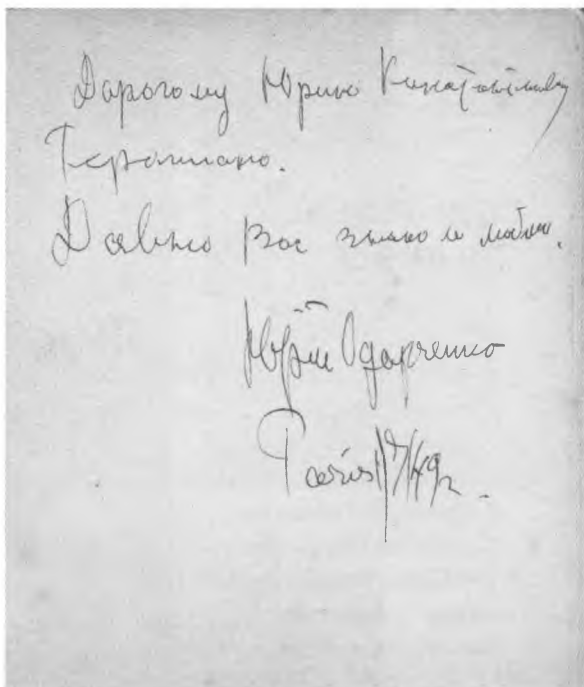 Дорогому Юрию Константиновичу
Терапиано.
Давно Вас знаю и люблю.
Юрий Одарченко
Paris 49г.